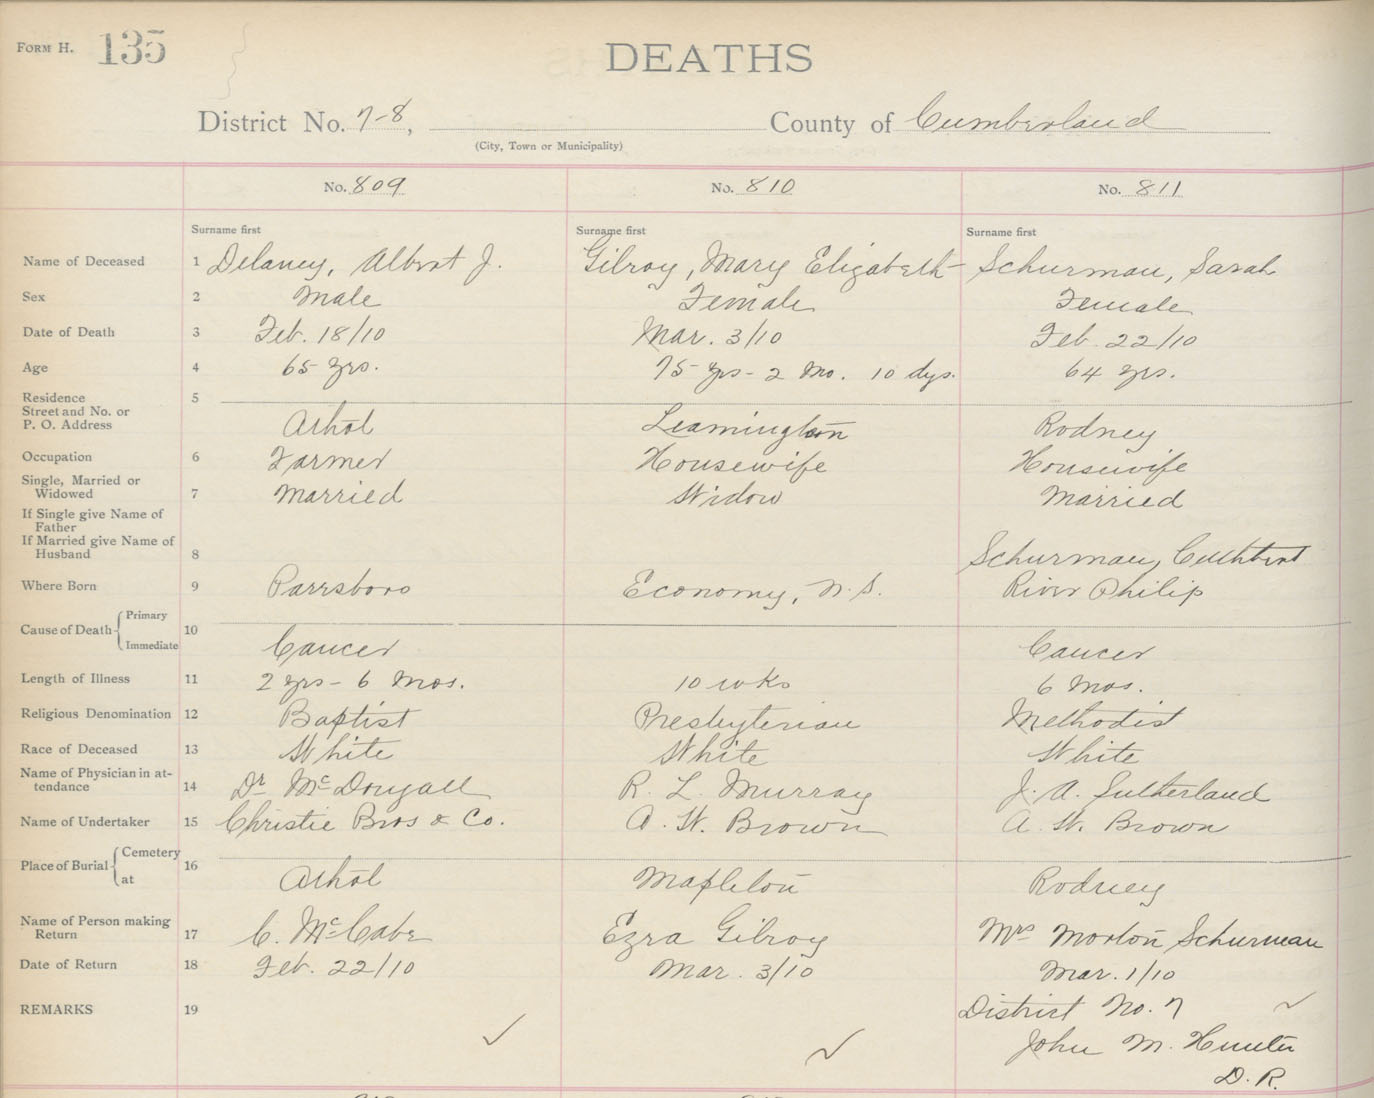 FORM H. 135
DEATHS
District No. 7-8, County of Cumberland
(City, Town or Municipality)
No. 809 No. 810 No. 811
Surname first Surname first Surname first
Name of Deceased 1 Delaney, Albert J. Gilroy, Mary Elizabeth Schurman, Sarah
Sex 2 Male Female Female
Date of Death 3 Feb. 18/10 Mar. 3/10 Feb. 22/10
Age 4 65 yrs. 75 yrs - 2 Mo. 10 dys. 64 yrs.
Residence 5
Street and No. or
P. O. Address Athol Leamington Rodney
Occupation 6 Farmer Housewife Housewife
Single, Married or
Widowed 7 Married Widow Married
If Single give Name of
Father
If Married give Name of
Husband 8 Schurman, Cuthbert
Where Born 9 Parrsboro Economy, N.S. River Philip
Cause of Death Primary 10
Immediate Cancer Cancer
Length of Illness 11 2 yrs - 6 Mos. 10 wks 6 Mos.
Religious Denomination 12 Baptist Presbyterian Methodist
Race of Deceased 13 White White White
Name of Physician in at-
tendance 14 Dr McDougall R. L. Murray J. A. Sutherland
Name of Undertaker 15 Christie Bros & Co. A. W. Brown A. W. Brown
Place of Burial Cemetery 16
at Athol Mapleton Rodney
Name of Person making
Return 17 C. McCabe Ezra Gilroy Mrs Morton Schurman
Date of Return 18 Feb. 22/10 Mar. 3/10 Mar. 1/10
REMARKS 19 District No. 7
John M. Hunter
D. R.